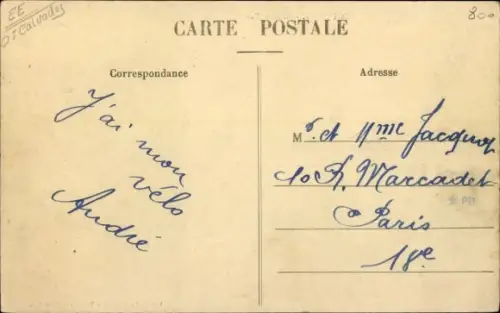 EE
Dt Calvados
800
CARTE POSTALE
Correspondance
Adresse
J'ai mon
vélo
André
Mr et Mme Jacquot
10 R. Marcadet
Paris
18e.